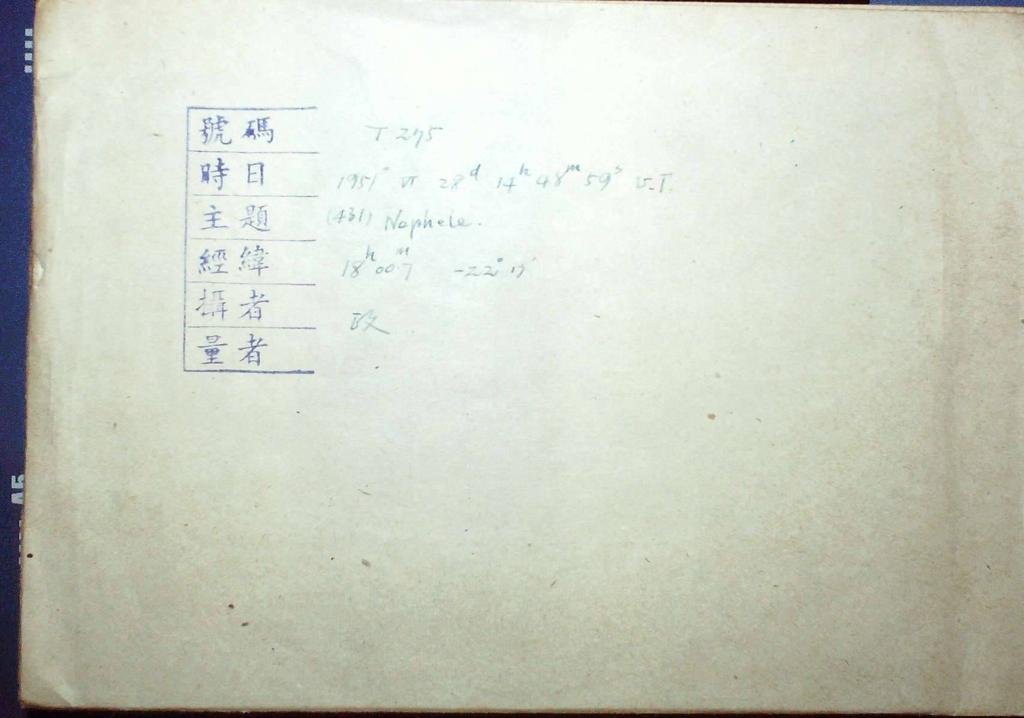 號碼 T 275
時日 1951 VI 28d 14h 48m 59s U.T.
主題 (431) Nephele.
經緯 18h 00m7 -22° 17'
攝者 政
量者